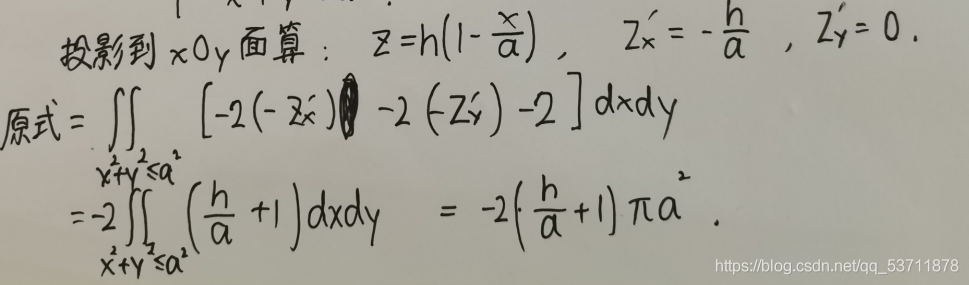 投影到xOy面算: z=h(1-x/a), Z'x=-h/a, Z'y=0.
原式=∬x²+y²≤a² [-2(-Z'x) -2(-Z'y)-2]dxdy
=-2∬x²+y²≤a² (h/a+1)dxdy =-2(h/a+1)πa².
https://blog.csdn.net/qq_53711878